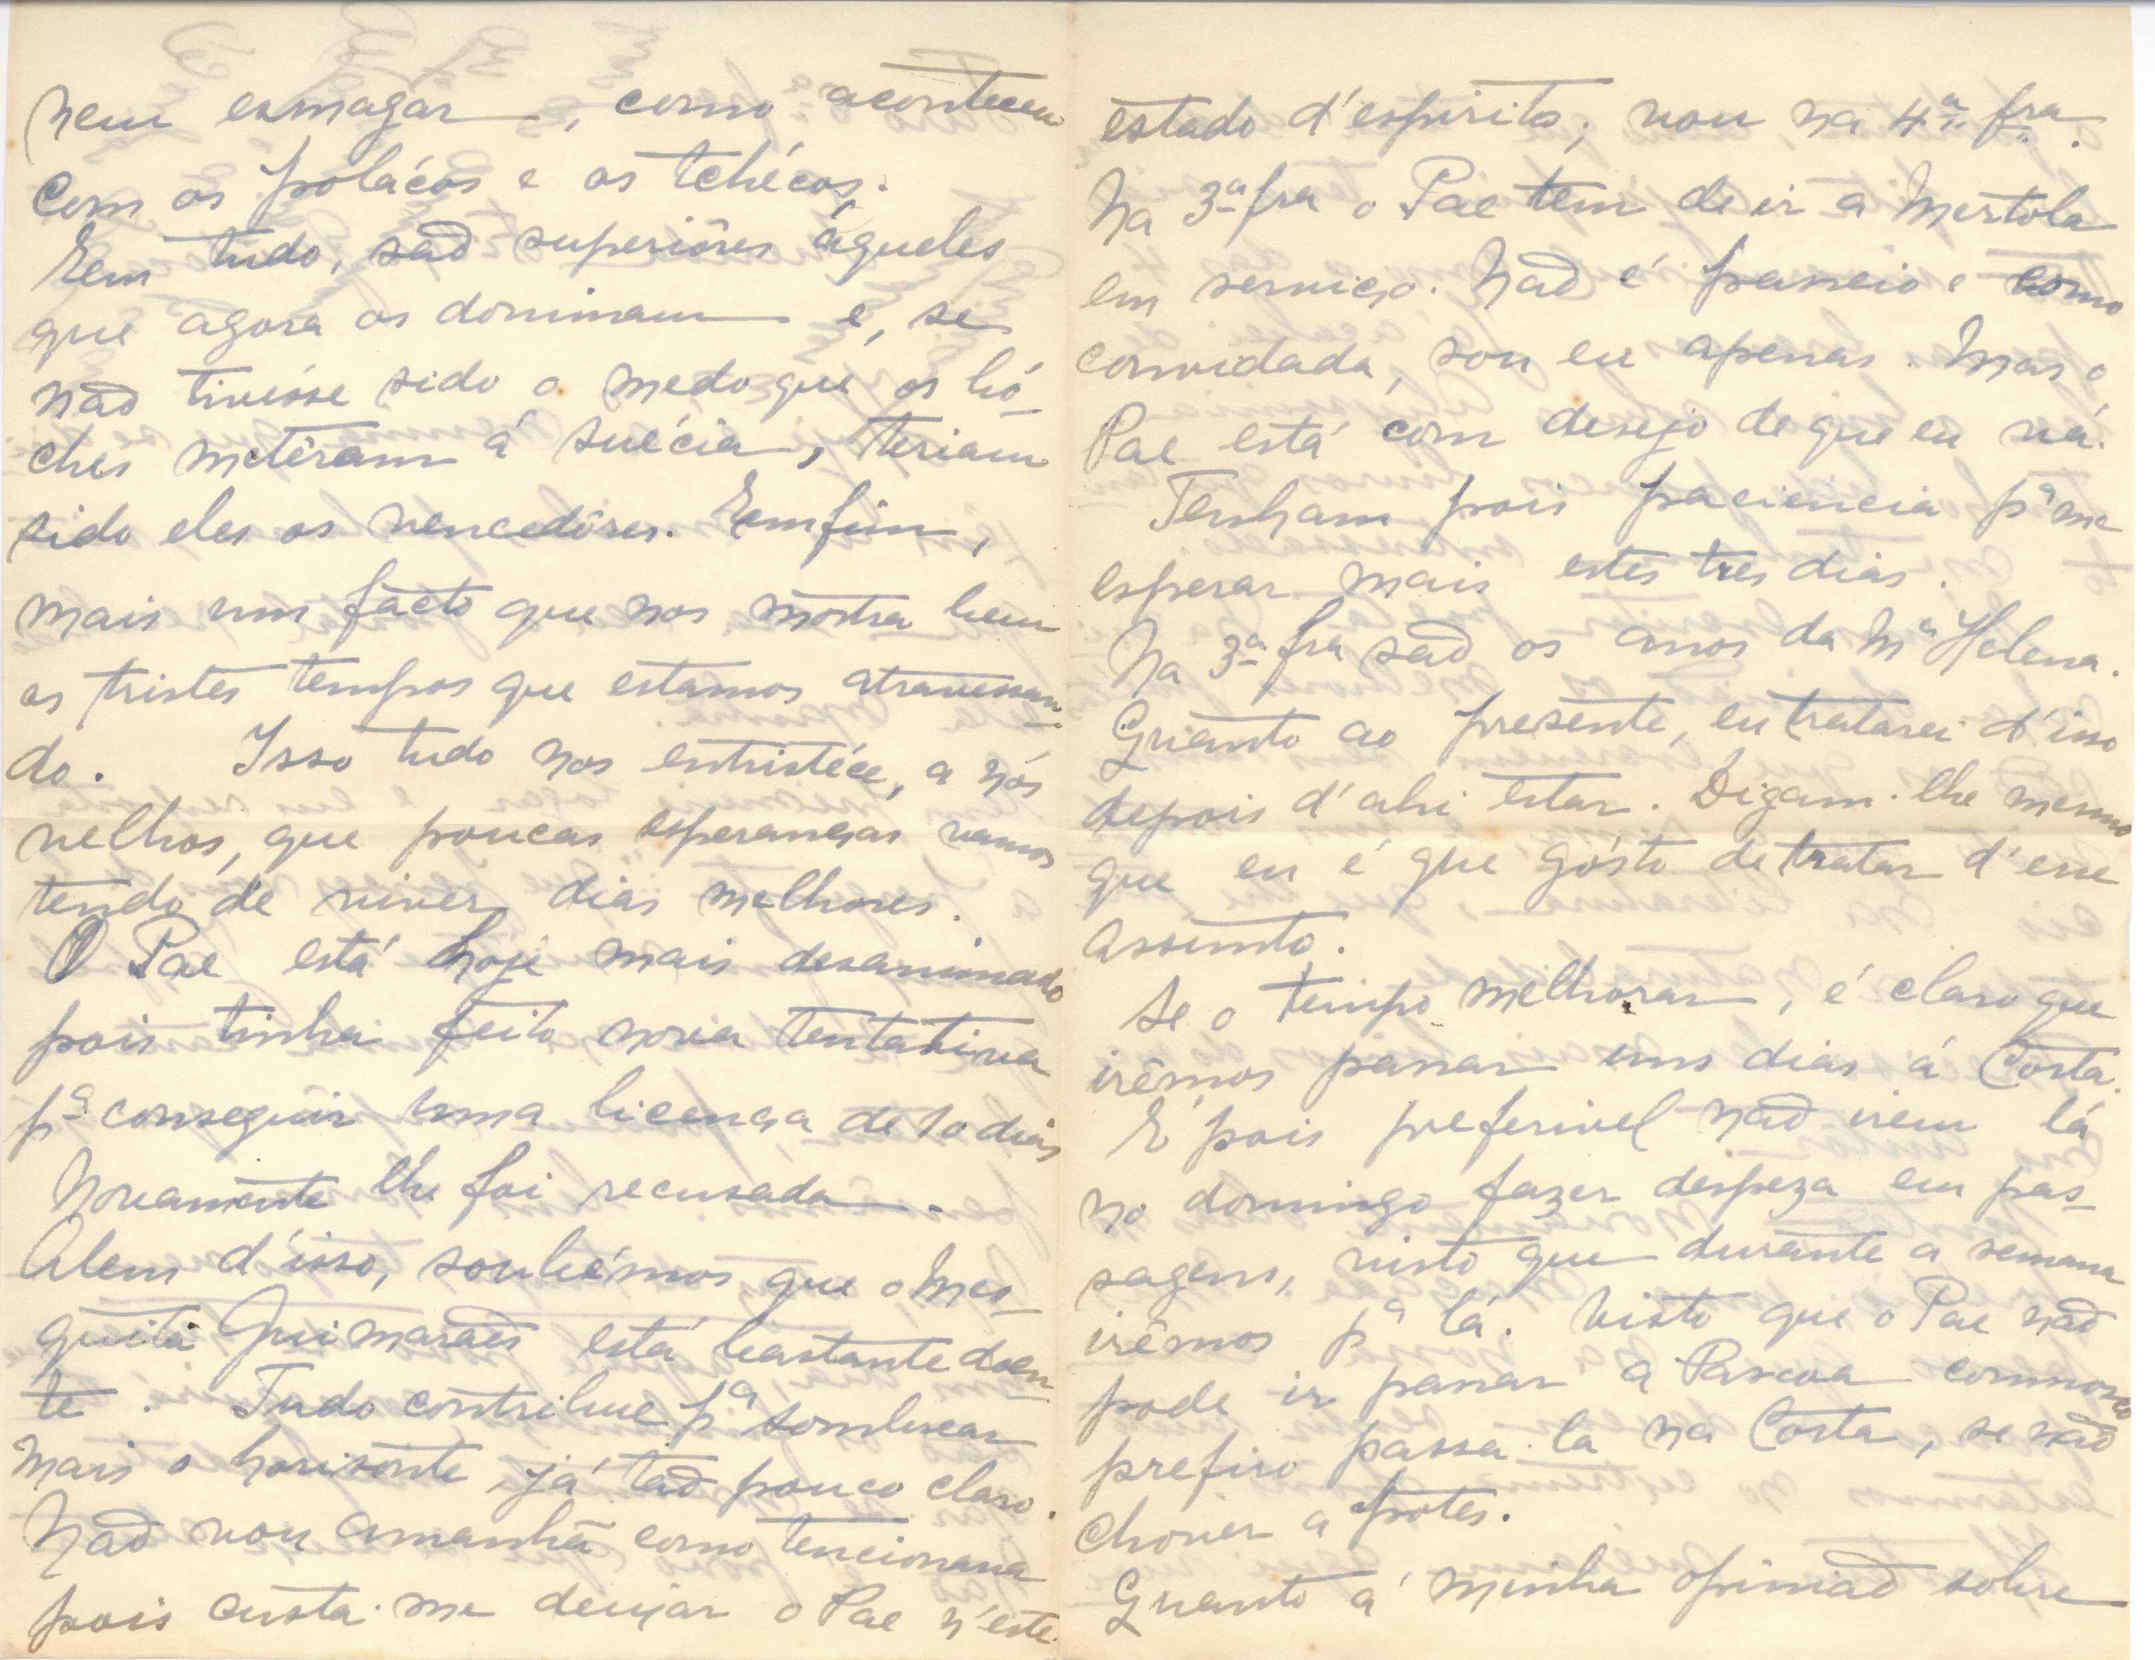 nem esmagar, como aconteceu
com os polácos e os tchécos.
Em tudo, são superiôres áqueles
que agora os dominam e, se
não tivésse sido o medo que os bó-
ches metêram á Suécia, teriam
sido eles os vencedôres. Emfim,
mais um facto que nos mostra bem
os tristes tempos que estamos atravessan-
do. Isso tudo nos entristéce, a nós
velhos, que poucas esperanças vamos
tendo de viver dias melhores.
O Pae está hoje mais desanimado
pois tinha feito nova tentativa
pª conseguir uma licença de 10 dias
Novamente lhe foi recusada.
Alem d'isso, soubémos que o Mes-
quita Guimarães está bastante doen-
te. Tudo contribue pª sombrear
mais o horisonte, já tão pouco claro.
Não vou amanhã como tencionava
pois custa-me deixar o Pae n'este
estado d'espirito; vou na 4ª fra.
Na 3ª fra o Pae tem de ir a Mertola
em serviço. Não é passeio e como
convidada, sou eu apenas. Mas o
Pae está com desejo de que eu vá.
Tenham pois paciencia pª me
esperar mais estes tres dias.
Na 3ª fra são os anos da Mª Helena.
Quanto ao presente, eu tratarei d'isso
depois d'ahi estar. Digam-lhe mesmo
que eu é que gósto de tratar d'esse
assunto.
Se o tempo melhorar, é claro que
irêmos passar uns dias á Costa.
É pois preferivel não irem lá
no domingo fazer despeza em pas-
sagens, visto que durante a semana
irêmos pª lá. Visto que o Pae não
pode ir passar a Pascoa comnosco
prefiro passa-la na Costa, se não
chover a potes.
Quanto á minha opinião sobre